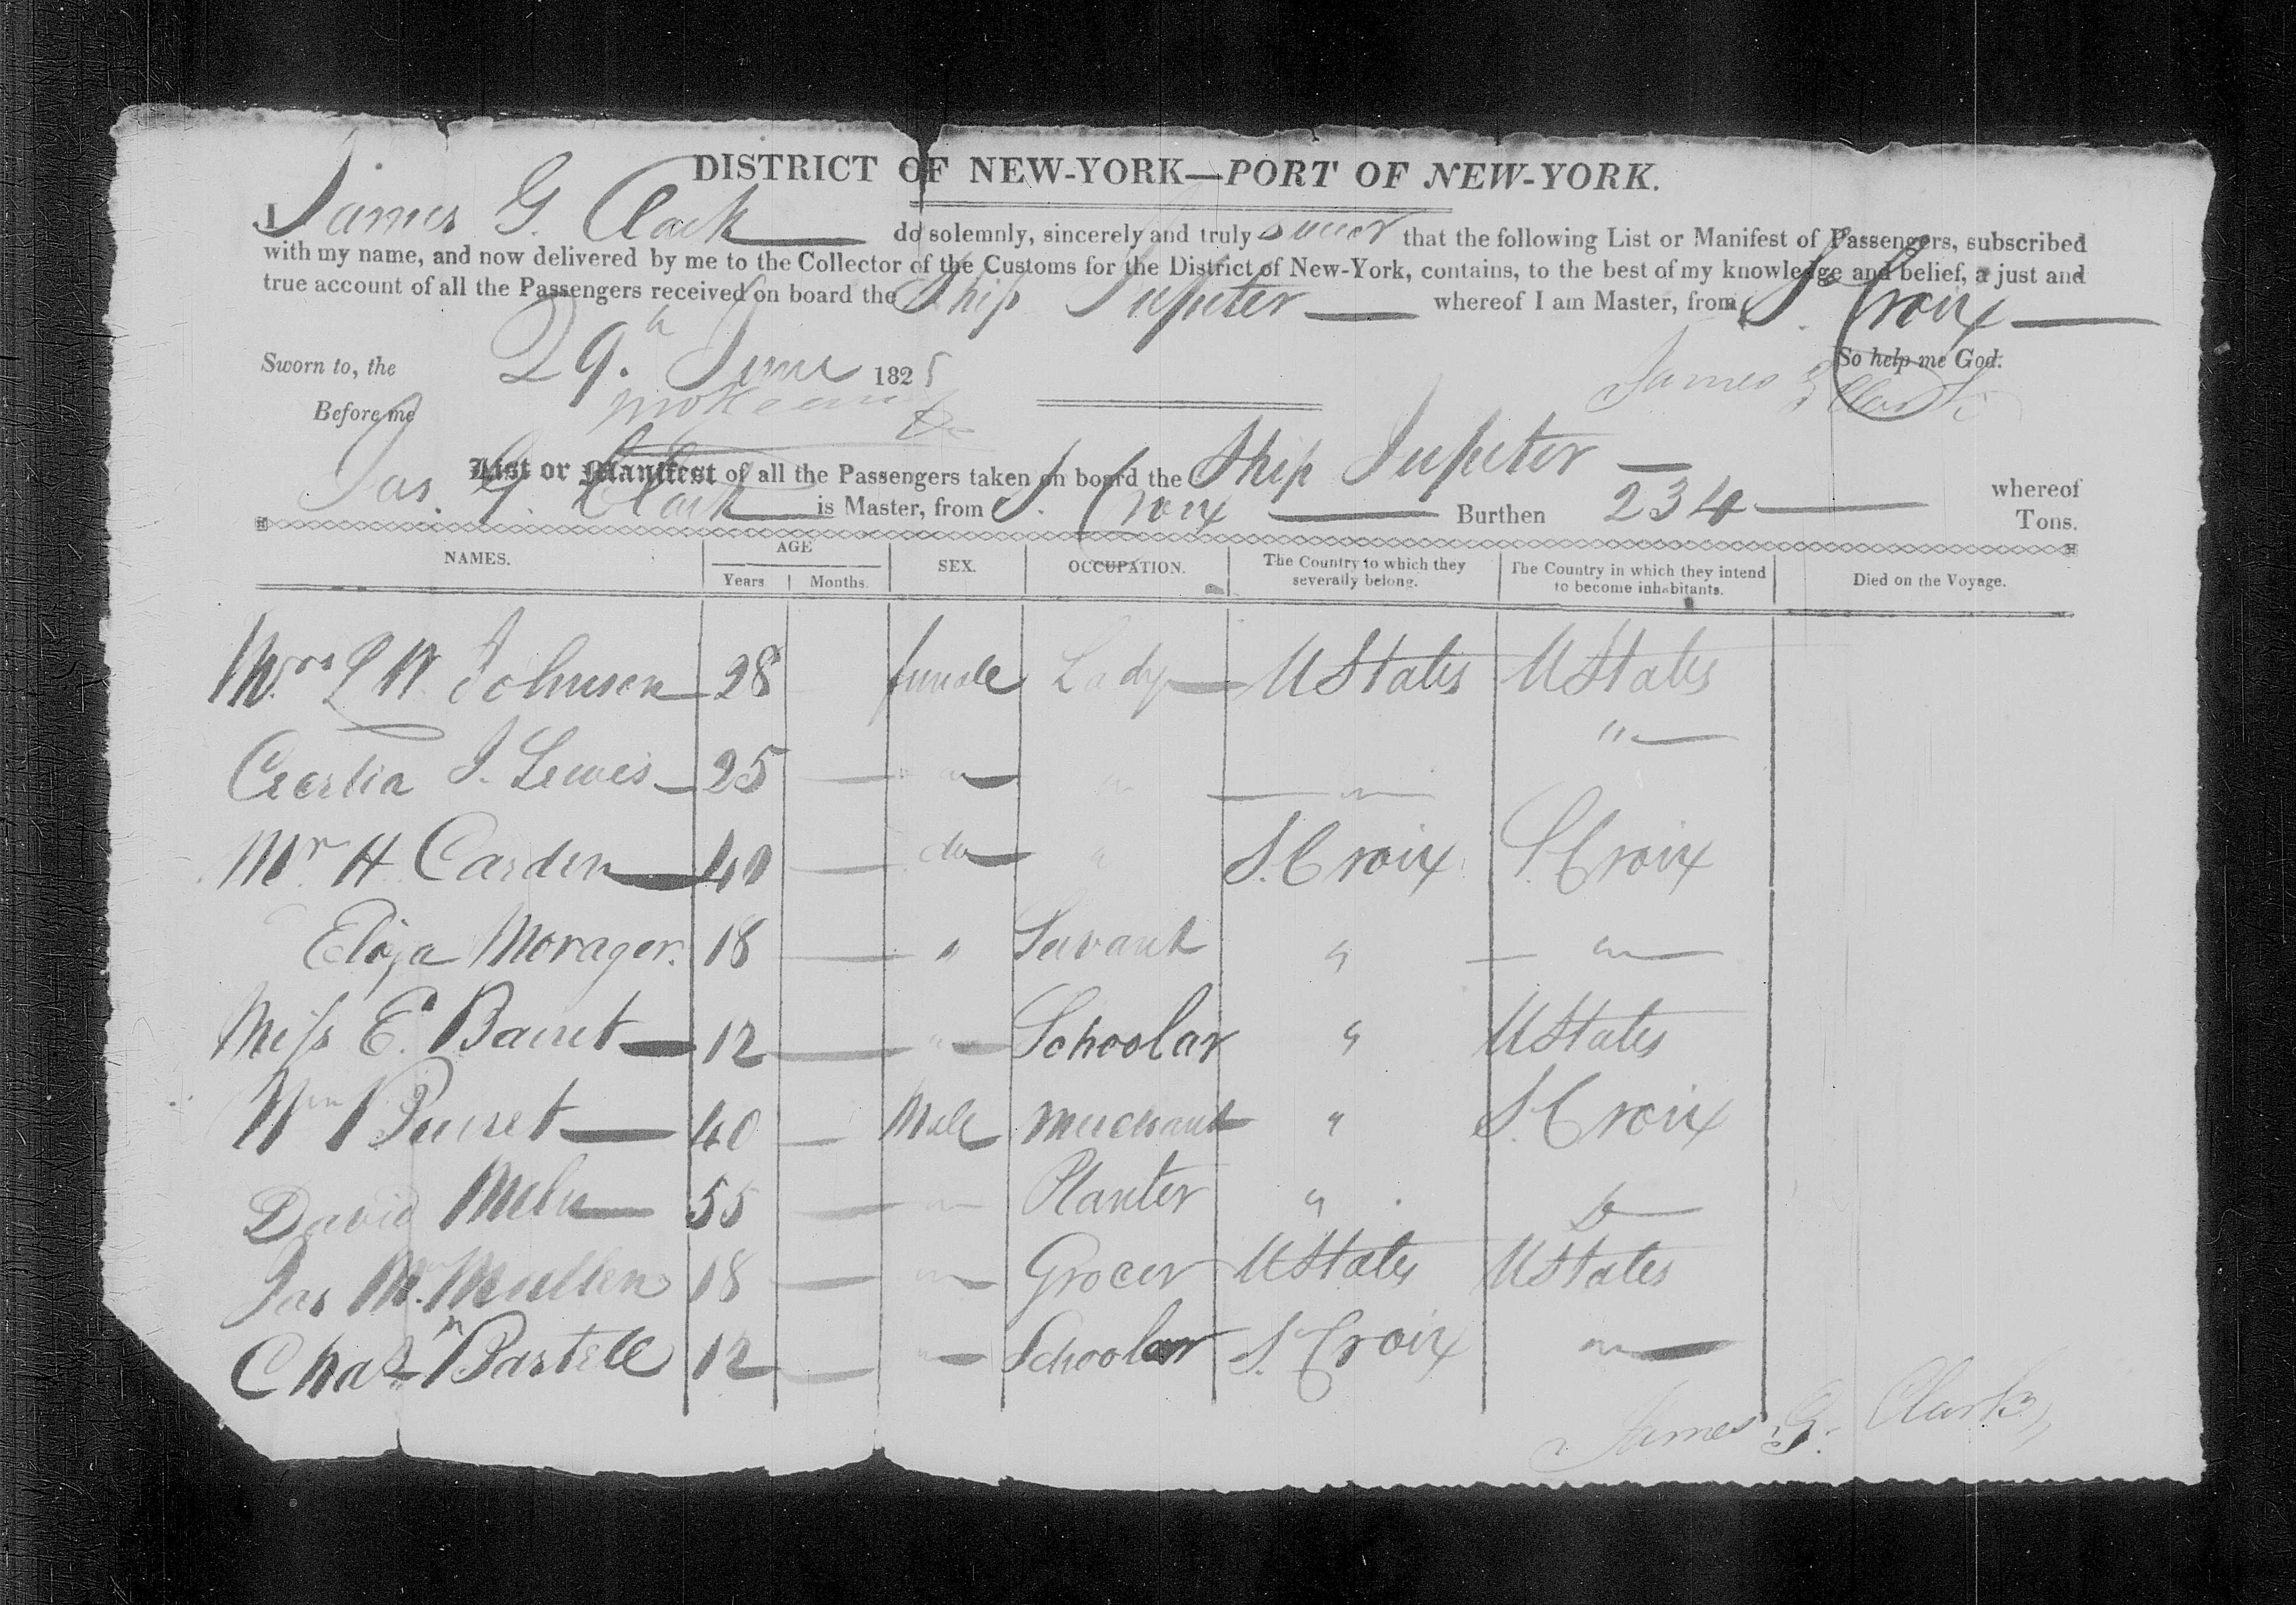 DISTRICT OF NEW-YORK—PORT OF NEW-YORK.
I James G. Clark do solemnly, sincerely and truly swear that the following List or Manifest of Passengers, subscribed
with my name, and now delivered by me to the Collector of the Customs for the District of New-York, contains, to the best of my knowledge and belief, a just and
true account of all the Passengers received on board the Ship Jupiter whereof I am Master, from St. Croix
So help me God.
Sworn to, the 29th June 1825
James G Clark
Before me
List or Manifest of all the Passengers taken on board the Ship Jupiter whereof
Jas. G. Clark is Master, from St. Croix Burthen 234 Tons.
NAMES. AGE Years Months. SEX. OCCUPATION. The Country to which they severally belong. The Country in which they intend to become inhabitants. Died on the Voyage.
Mrs L W. Johnson 28 female Lady U States U States
Cecelia J. Lewis 25 — " " " "
Mr H Carden 40 — do " St. Croix St. Croix
Eliza Morager. 18 — " Servant " "
Miss E. 12 — " Schoolar " U States
Wm 40 — Male Merchant " St. Croix
David 55 — " Planter " Do
Jas Mc.Mullen 18 — " Grocer U States U States
Chas Bartell 12 — " Schoolar St. Croix "
James G. Clark